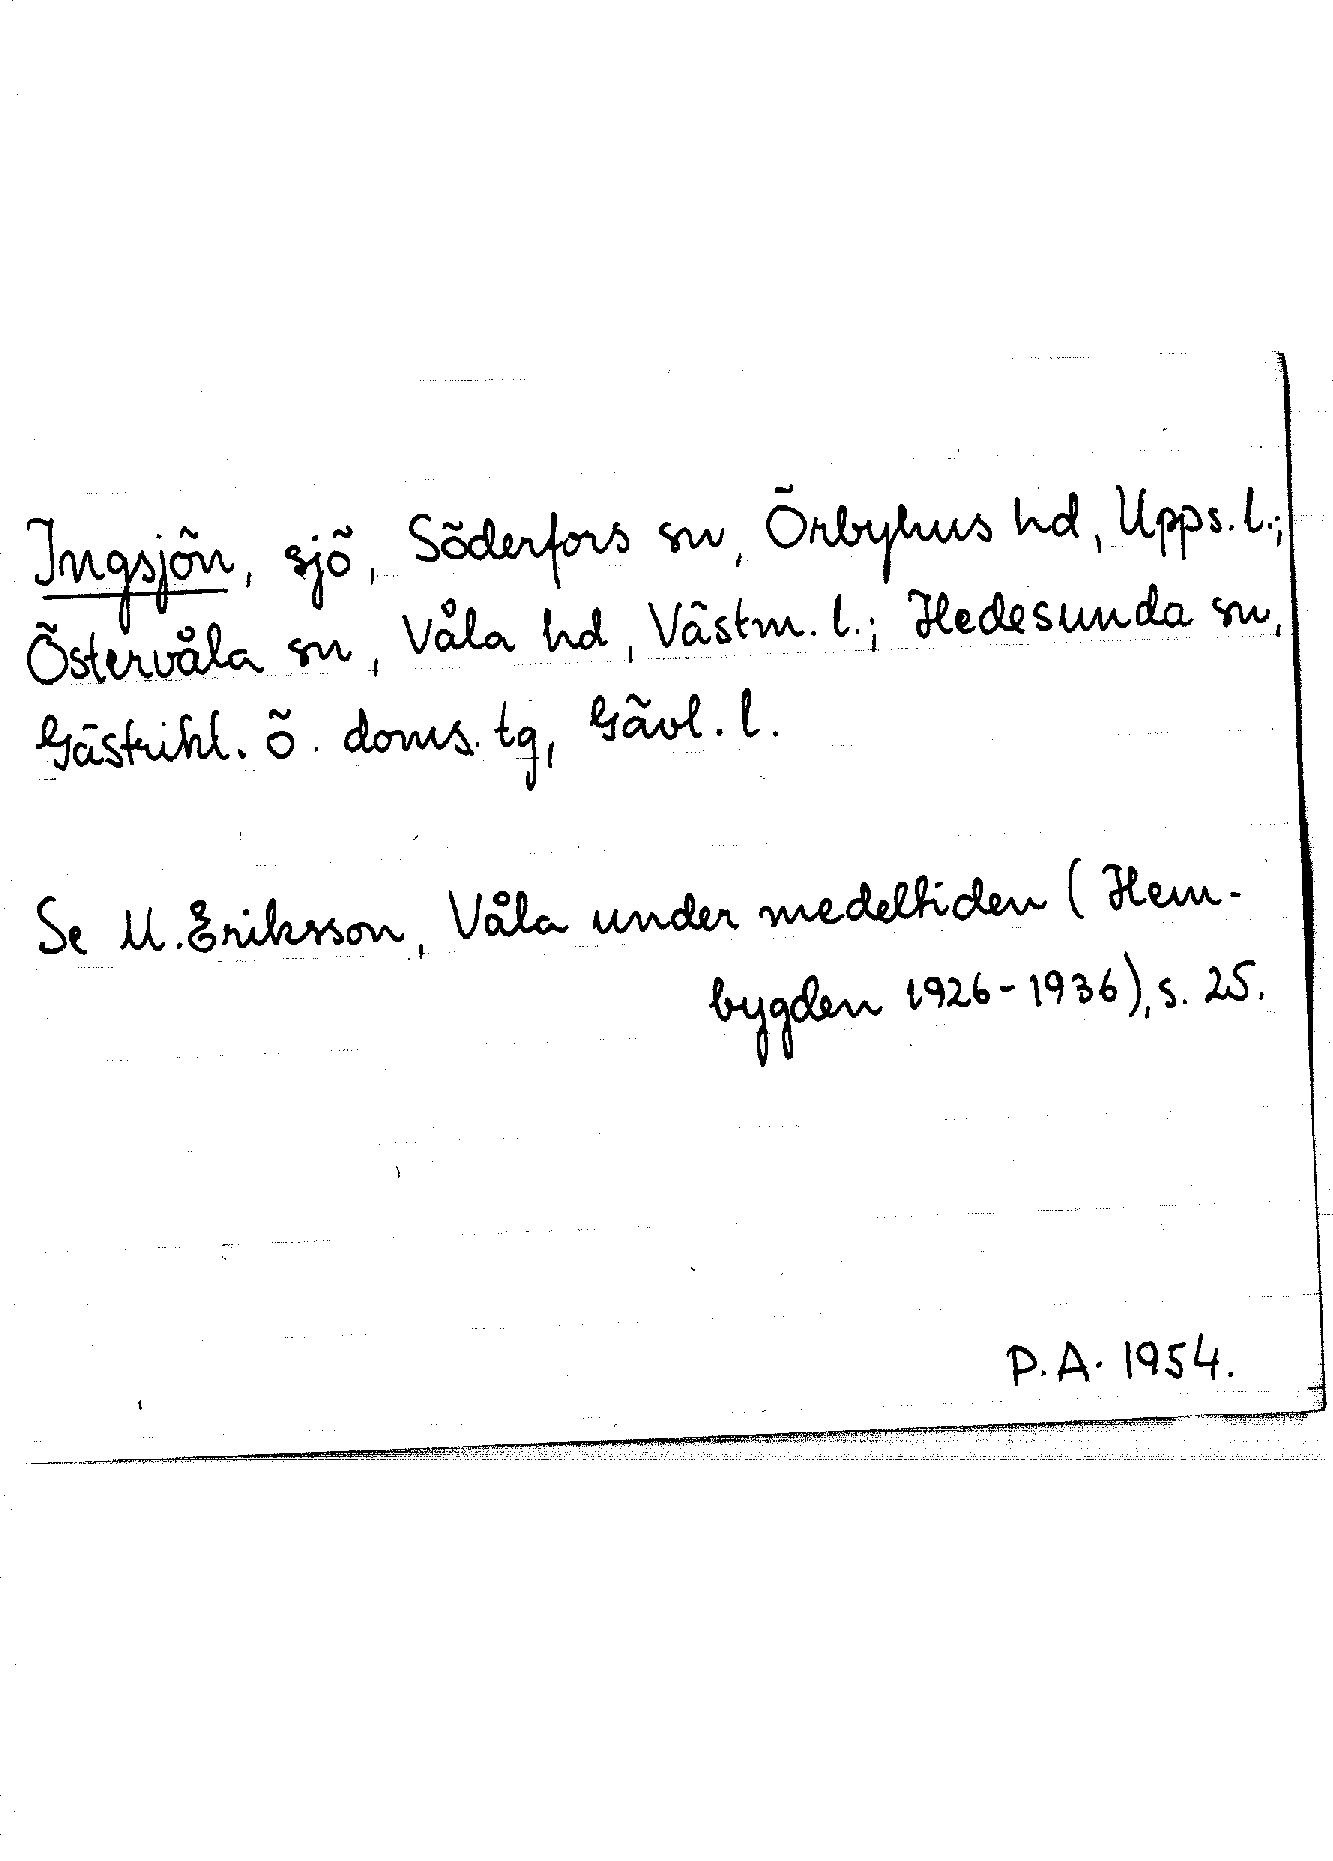 Ingsjön, sjö, Söderfors sn, Örbyhus hd, Upps. l.;
Östervåla sn, Våla hd, Västm. l.; Hedesunda sn,
Gästrikl. ö. doms. tg, Gävl. l.
Se M. Eriksson, Våla under medeltiden (Hem-
bygden 1926-1936), s. 25.
P. A. 1954.